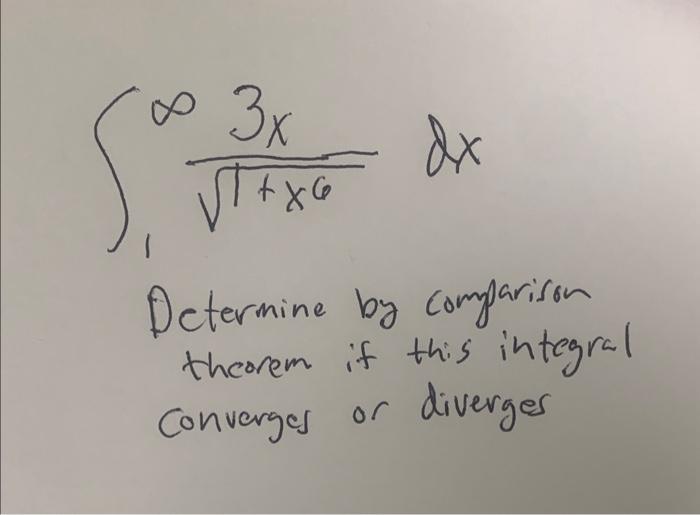 ∫₁^∞ 3x/√(1+x⁶) dx
Determine by comparison
theorem if this integral
converges or diverges